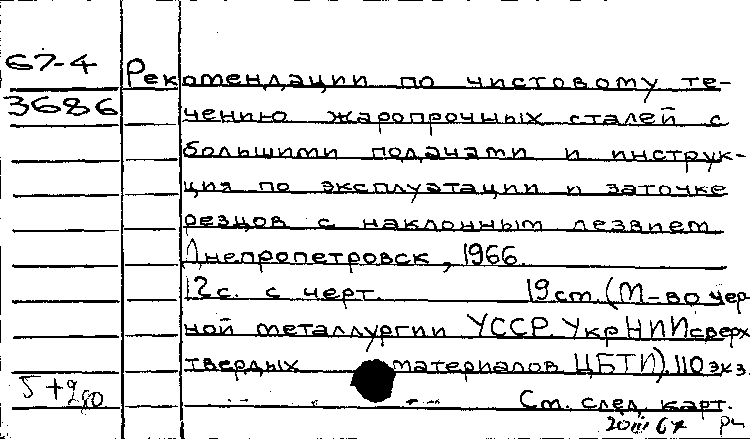 67-4 Рекомендации по чистовому те-
3686 чению жаропрочных сталей с
большими подачами и инструк-
ция по эксплуатации и заточке
резцов с наклонным лезвием
Днепропетровск, 1966.
12с. с черт. 19 ст. (М-во чер
ной металлургии УССР. УкрНИИсверх
твердых материалов ЦБТИ). 110 экз.
Ст. след. карт.
20III 67